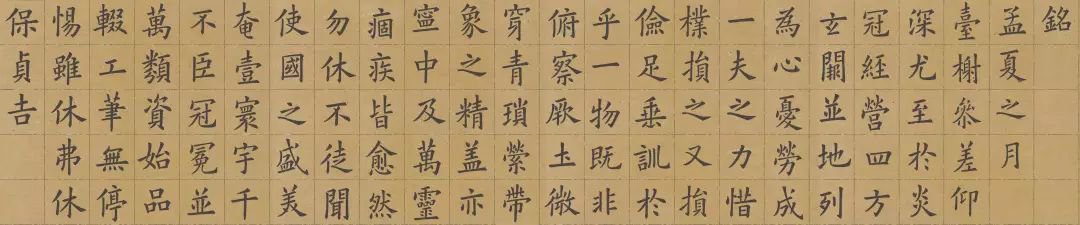 銘
孟夏之月
臺榭參差仰
深尤至於炎
冠經營四方
玄闕並地列
為心憂勞成
一夫之力惜
樸損之又損
儉足垂訓於
乎一物既非
俯察厥土微
穿青瑣縈帶
象之精蓋亦
寧中及萬靈
痼疾皆愈然
勿休不徒聞
使國之盛美
奄壹寰宇千
不臣冠冕並
萬類資始品
輟工筆無停
惕雖休弗休
保貞吉